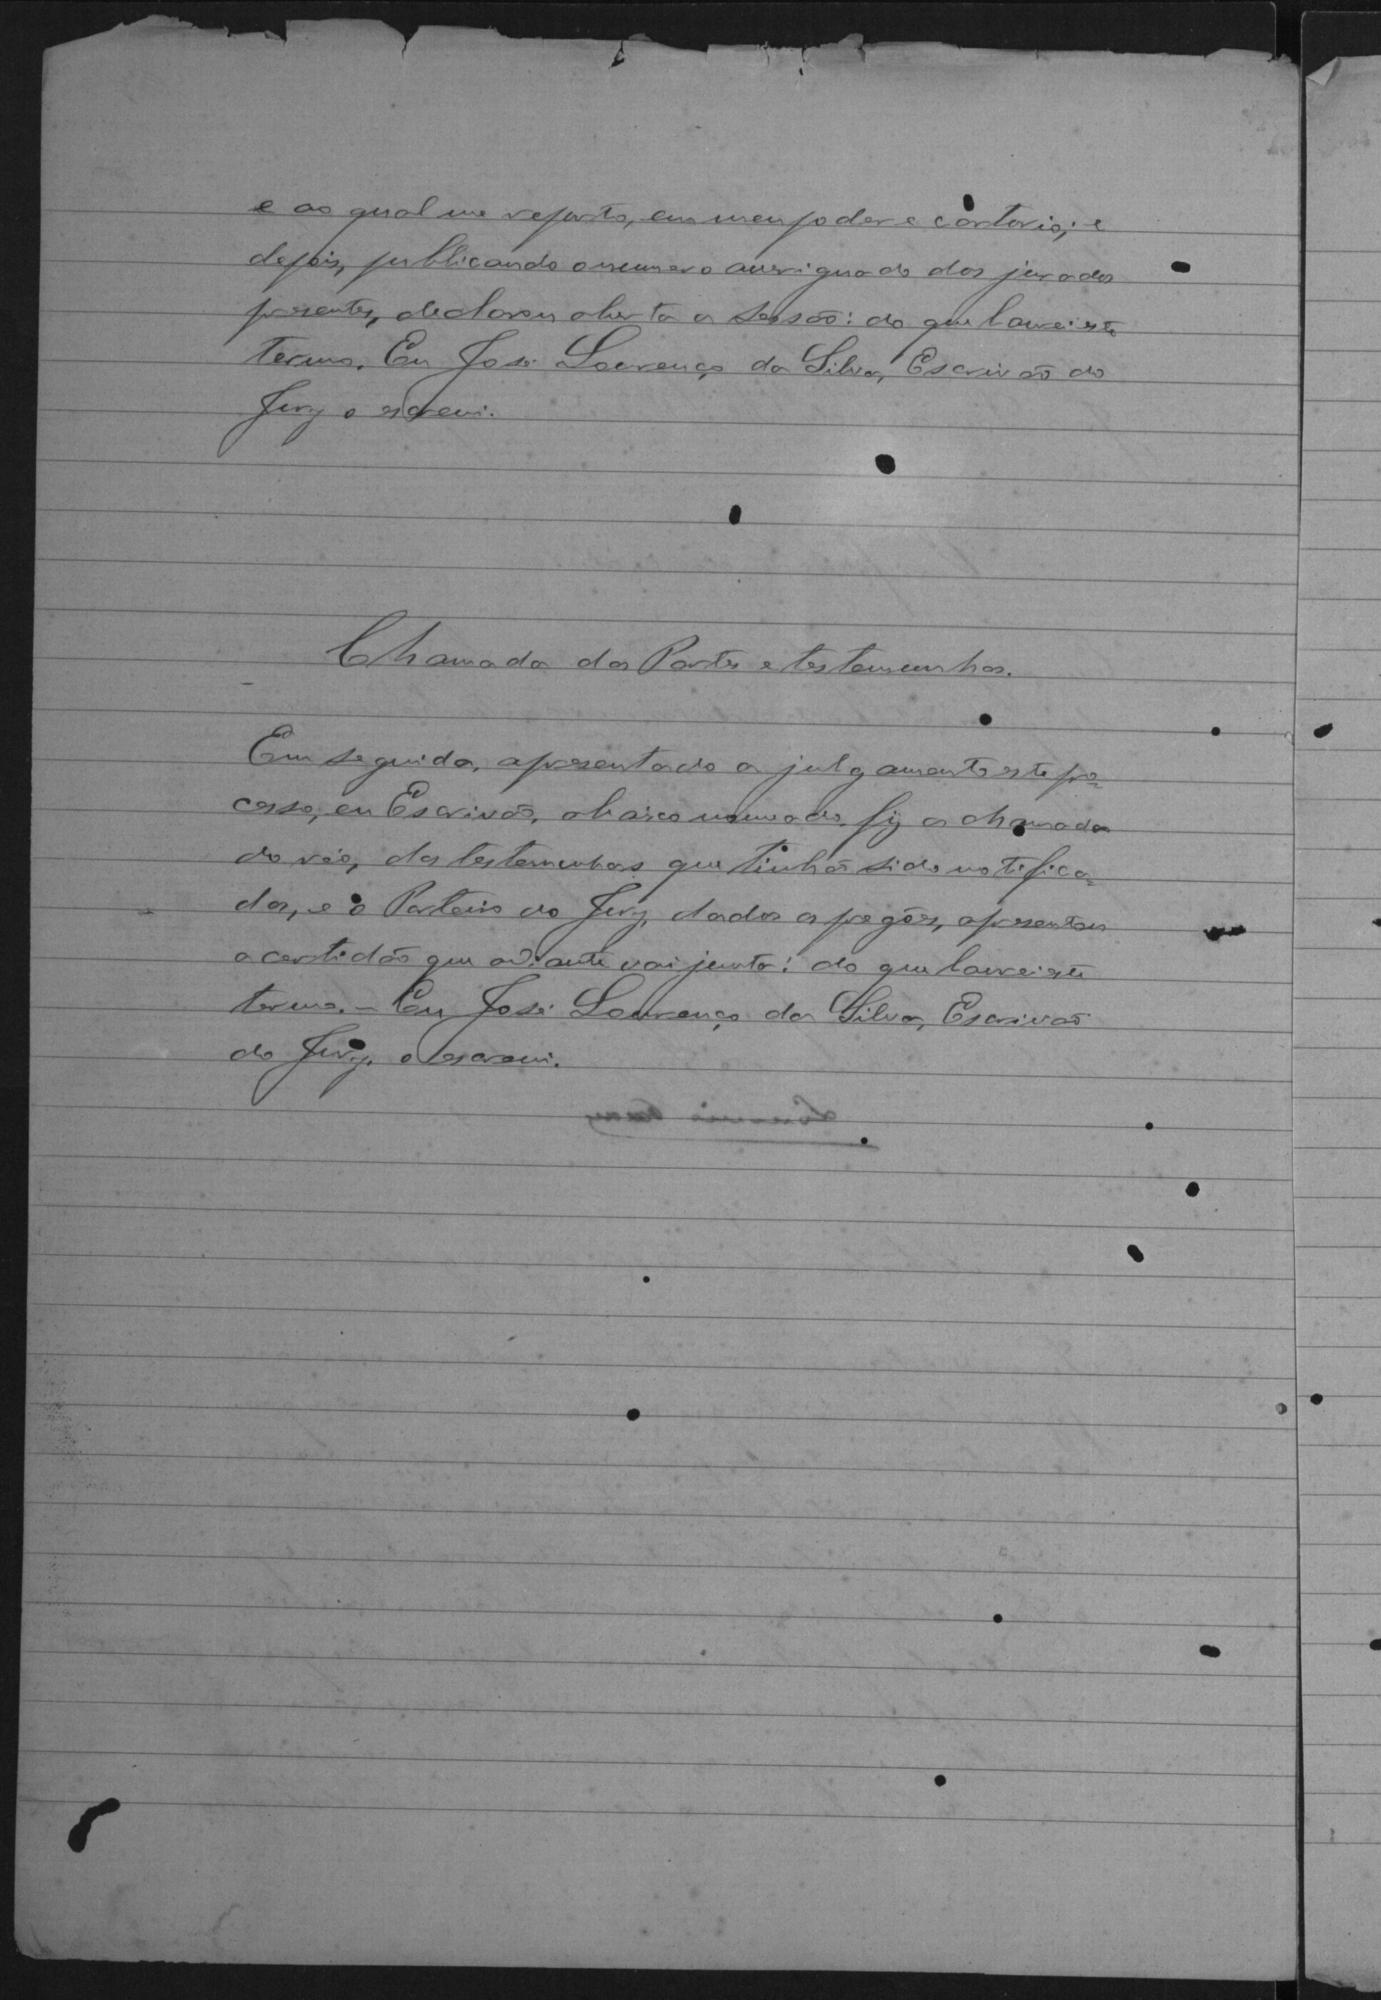 e ao qual me reporto, em meu poder e cartorio; e
depois, publicando o numero averiguado dos jurados
presentes, declarou aberta a sessão: do que lavrei este
termo. Eu José Lourenço da Silva, Escrivão do
Jury o escrevi.
Chamada das Partes e testemunhas.
Em seguida, apresentado a julgamento este pro=
cesso, eu Escrivão, abaixo nomeado, fiz a chamada
do réo, das testemunhas que tinhão sido notifica=
das, e o Porteiro do Jury, dados os pregões, apresentou
a certidão que adiante vai junta: do que lavrei este
termo. – Eu José Lourenço da Silva, Escrivão
do Jury, o escrevi.